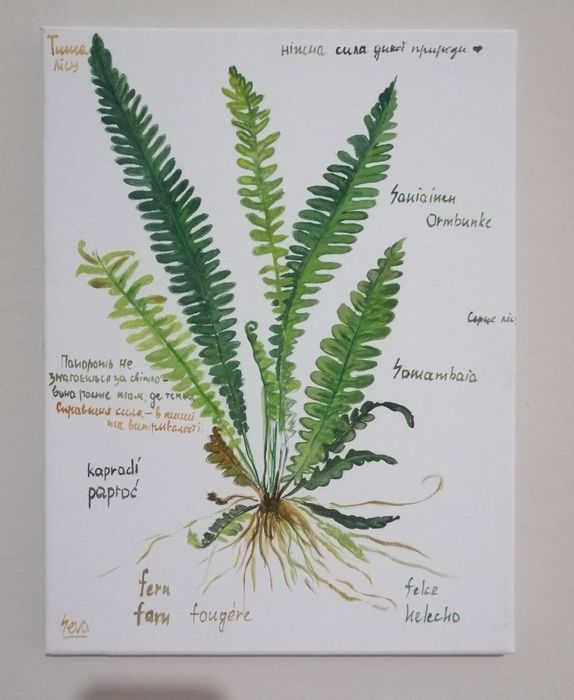 Тиша
лісу
ніжна сила дикої природи
Saniainen
Ormbunke
Серце ліс
Папороть не
змагається за світло -
вона росте там, де темно.
Справжня сила - в тиші
та витривалості.
Samambaia
kapradí
paproć
fern
farn fougére
felce
helecho